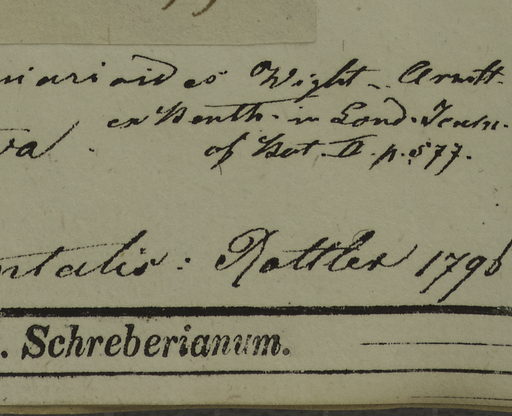 niarioides Wight. Arnott.
ex Benth. in Lond. Journ.
va. of Bot. II. p. 577.
ntalis: Rottler 1796
. Schreberianum.